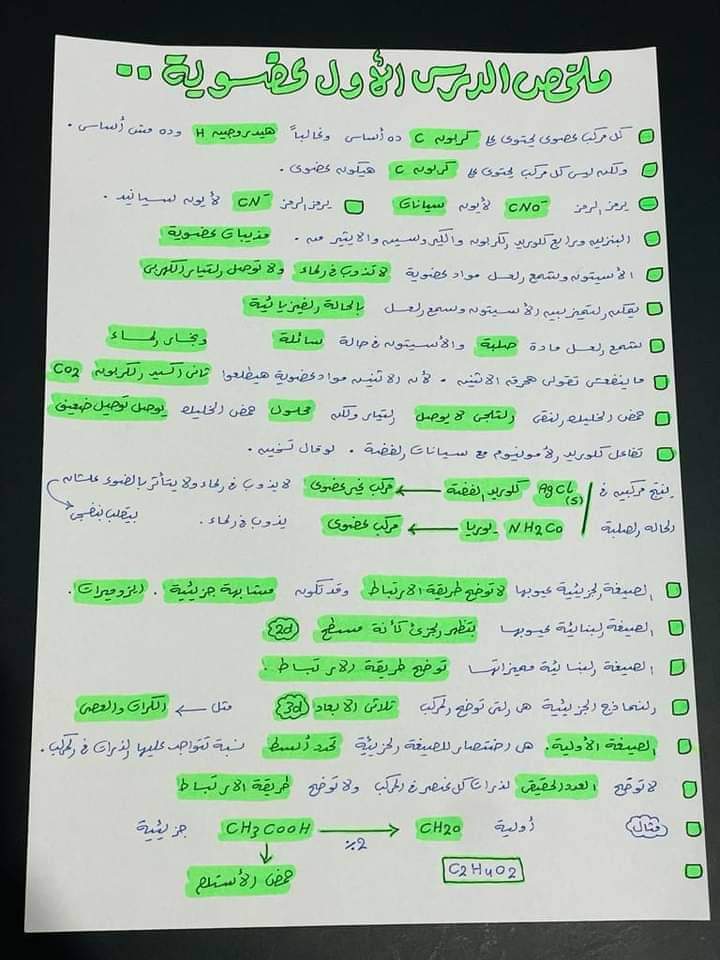 ملخص الدرس الأول عضوية ..
كل مركب عضوى يحتوى على كربون C ده أساسى وغالباً هيدروجين H وده مش أساسى .
ولكن ليس كل مركب يحتوى على كربون C هيكون عضوى .
يرمز الرمز CNO⁻ لأيون سيانات يرمز الرمز CN⁻ لأيون لسيانيد .
البنزين ورابع كلوريد الكربون والكيروسين والايثير منه . مذيبات عضوية
الأسيتون وشمع العسل مواد عضوية لا تذوب فى الماء ولا توصل التيار الكهربى
يمكن التمييز بين الأسيتون وشمع العسل بالحالة الفيزيائية
شمع العسل مادة صلبة والأسيتون فى حالة سائلة وبخار الماء
ما ينفعش تقولى هحرق الاتنين . لأن الاتنين مواد عضوية هيطلعوا ثانى أكسيد الكربون CO2
حمض الخليك النقى الثلجى لا يوصل التيار ولكن محلول حمض الخليك يوصل توصيل ضعيف
تفاعل كلوريد الأمونيوم مع سيانات الفضة . لو قال تسخين .
ينتج مركبين فى AgCl (s) كلوريد الفضة ← مركب غير عضوى لا يذوب فى الماء ولا يتأثر بالضوء علشان
الحالة الصلبة NH2Co يوريا ← مركب عضوى يذوب فى الماء . بيتقلب بنفسجى
الصيغة الجزيئية عيوبها لا توضح طريقة الارتباط وقد تكون متشابهة جزيئية . ايزوميرات .
الصيغة البنائية عيوبها بتظهر الجزئ كأنة مسطح 2d
الصيغة البنائية مميزاتها توضح طريقة الارتباط .
النماذج الجزيئية هى التى توضح المركب ثلاثى الابعاد 3d مثل ← الكرات والعصى
الصيغة الأولية . هى اختصار للصيغة الجزيئية تحدد أبسط نسبة تتواجد عليها الذرات فى المركب .
لا توضح العدد الحقيقى لذرات كل عنصر فى المركب ولا توضح طريقة الارتباط
مثال أولية CH2O ← CH3COOH جزيئية
٪2
C2H4O2
حمض الأستيك